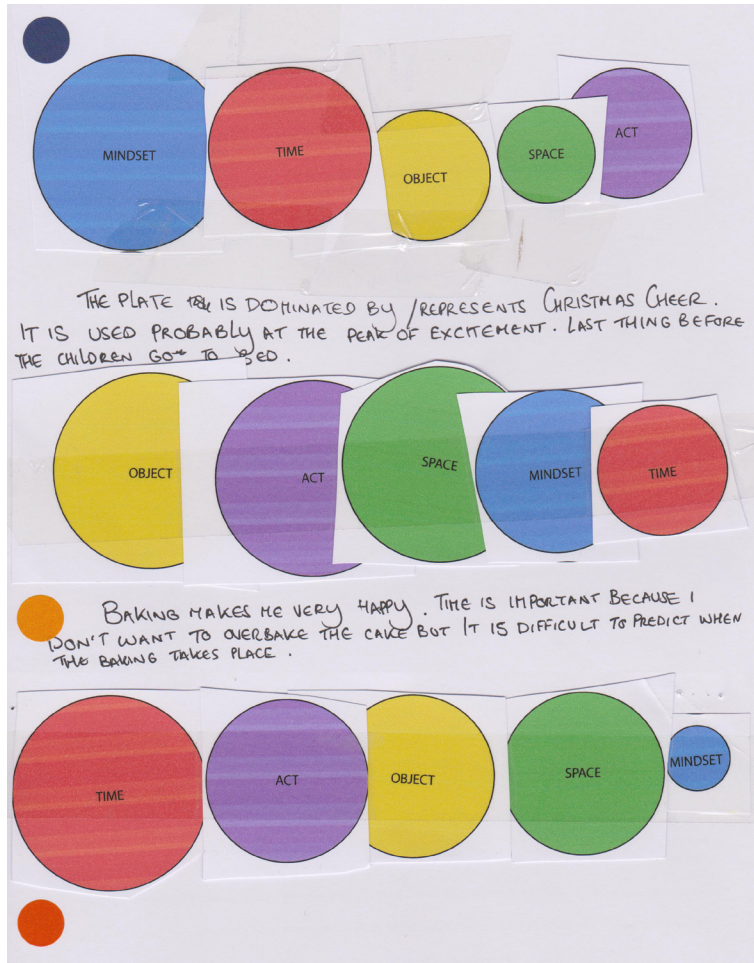 MINDSET TIME OBJECT SPACE ACT
THE PLATE IS DOMINATED BY / REPRESENTS CHRISTMAS CHEER.
IT IS USED PROBABLY AT THE PEAK OF EXCITEMENT. LAST THING BEFORE
THE CHILDREN GO TO BED.
OBJECT ACT SPACE MINDSET TIME
BAKING MAKES ME VERY HAPPY. TIME IS IMPORTANT BECAUSE I
DON'T WANT TO OVERBAKE THE CAKE BUT IT IS DIFFICULT TO PREDICT WHEN
THE BAKING TAKES PLACE.
TIME ACT OBJECT SPACE MINDSET